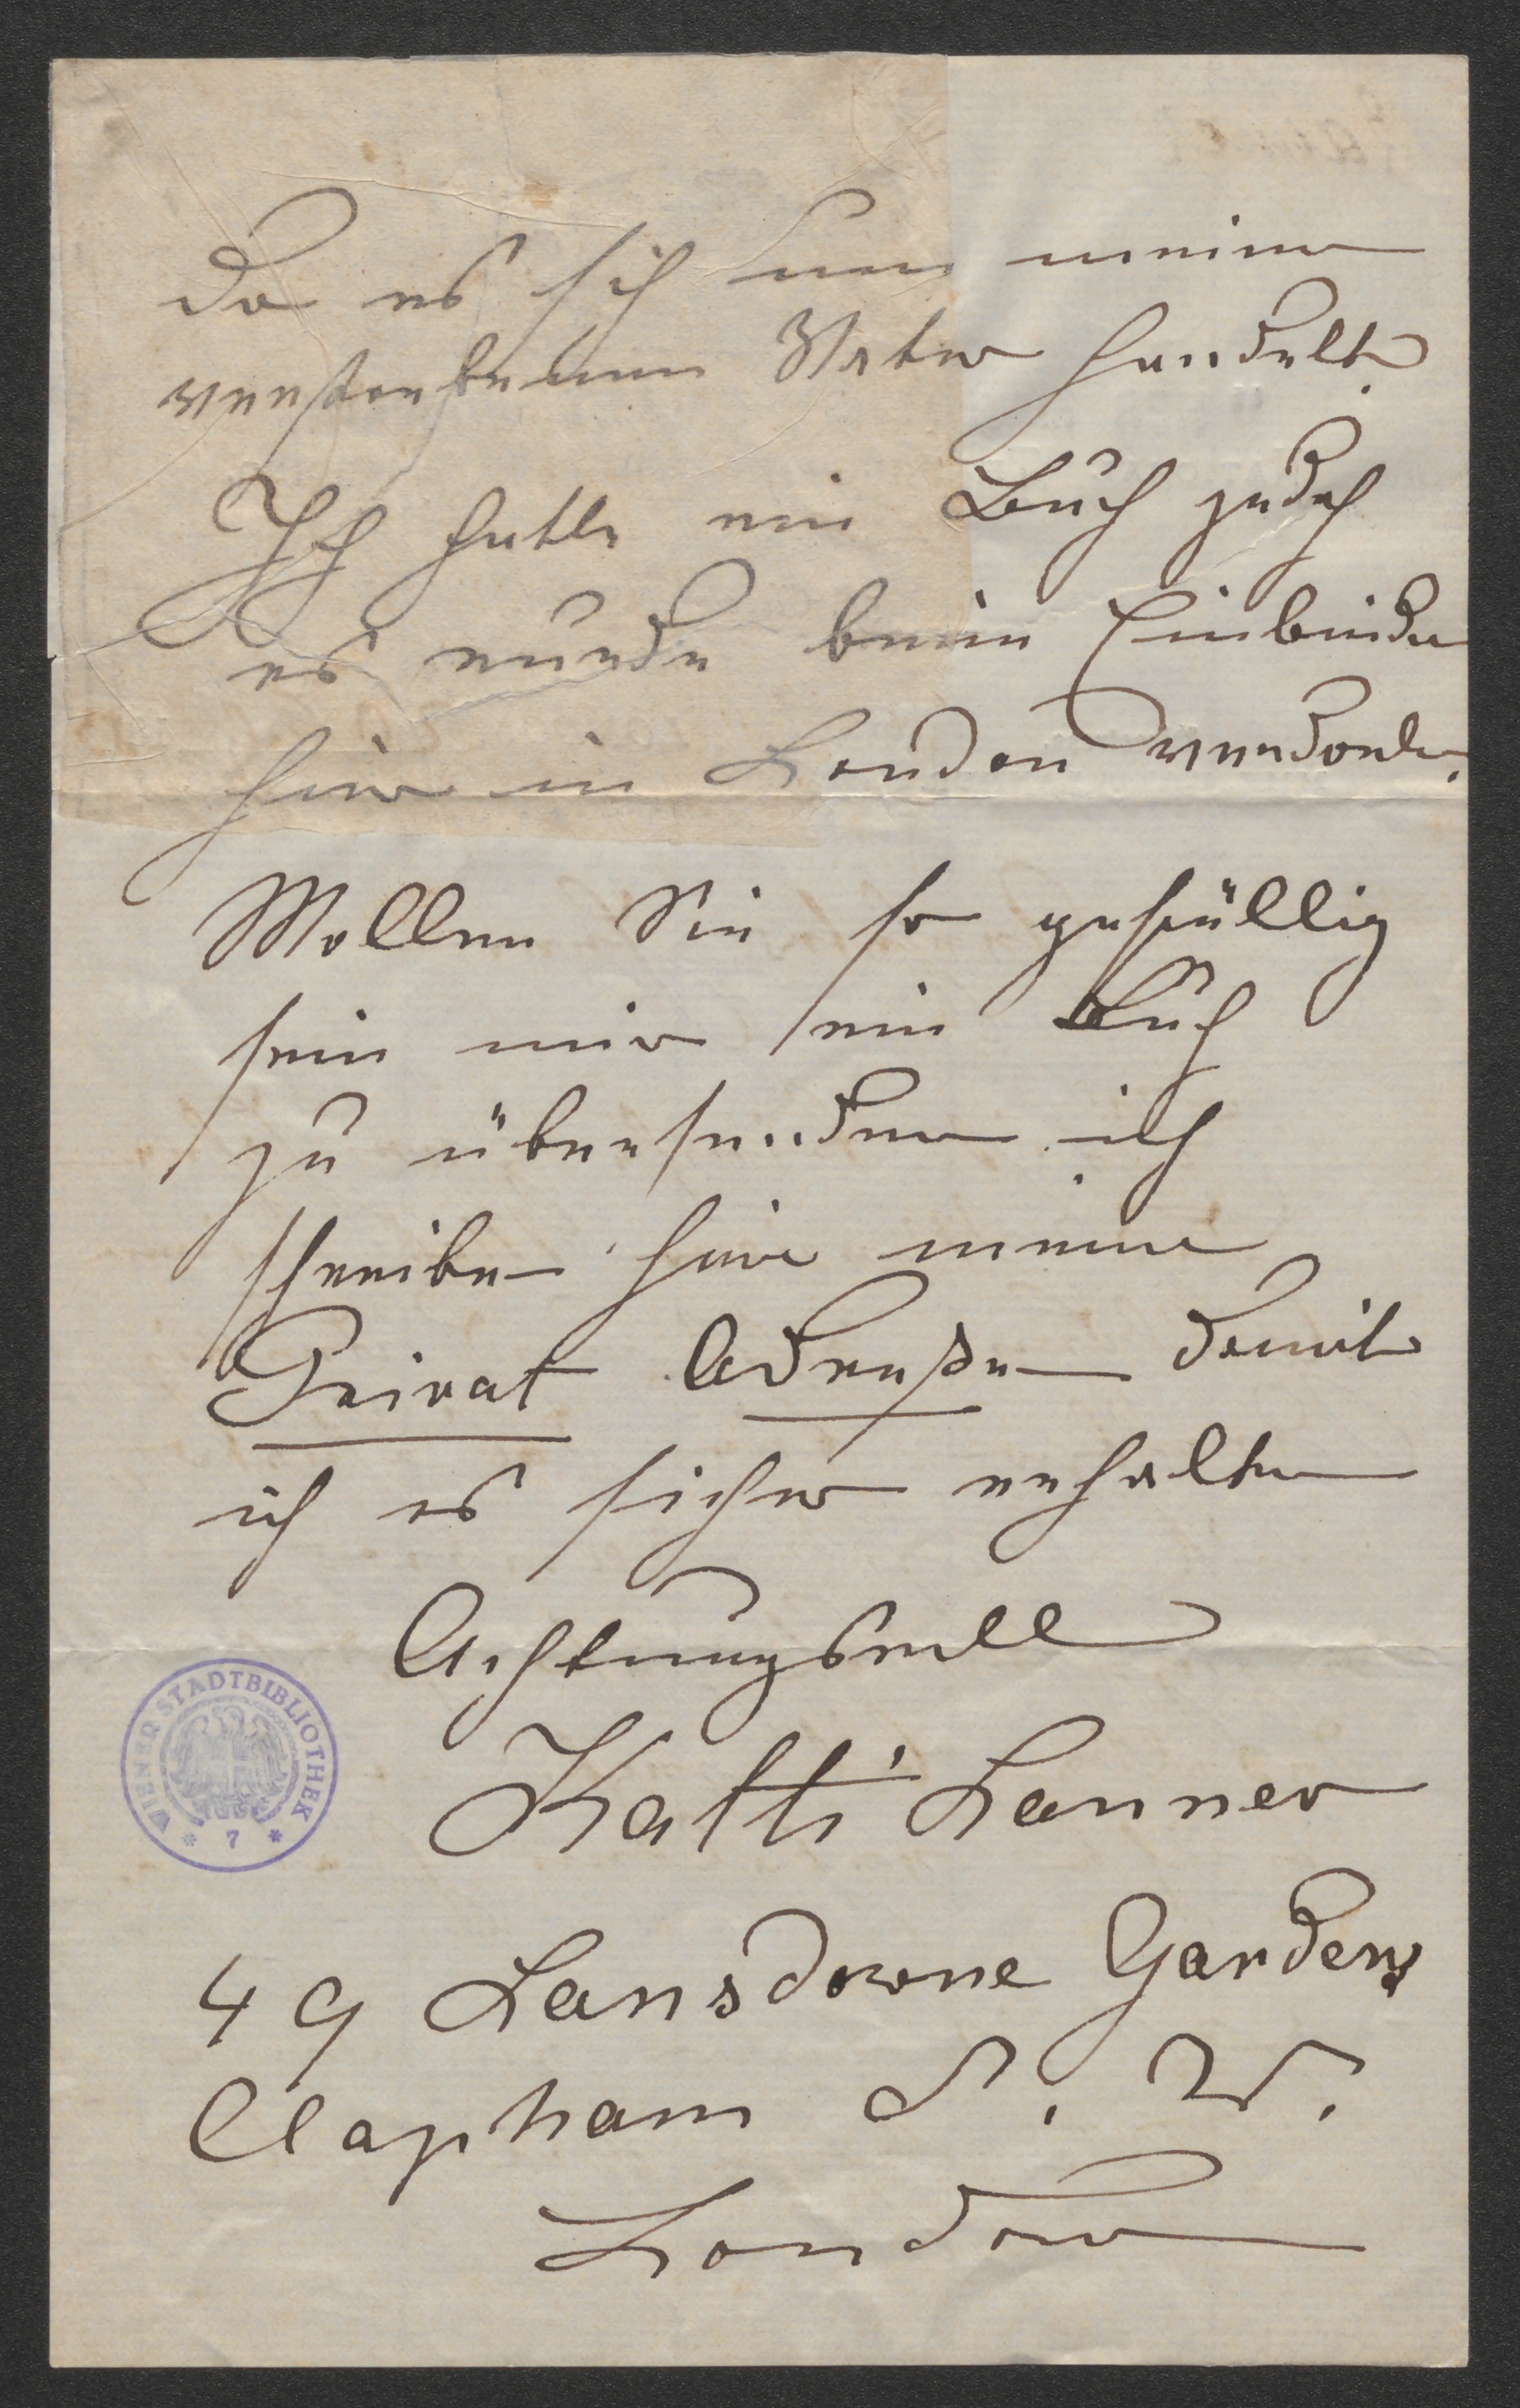 Da es sich um meinen
verstorbenen Vater handelt.
Ich hatte ein Buch jedoch
es wurde beim Einbinden
hier in London verdorben.
Wollen Sie so gefällig
sein mir ein Buch
zu übersenden. ich
schreibe hier meine
Privat Adresse damit
ich es sicher erhalte
Achtungsvoll
Katti Lanner
49 Lansdowne Gardens
Clapham S. W.
London
WIENER STADTBIBLIOTHEK
* 7 *